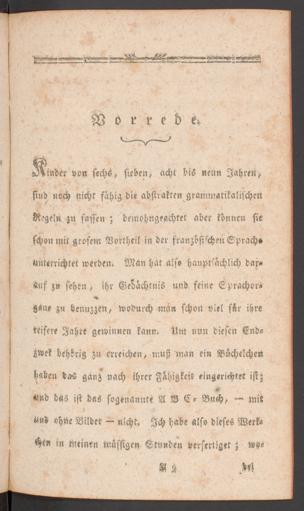 Vorrede.
Kinder von sechs, sieben, acht bis neun Jahren,
sind noch nicht fähig die abstrakten grammatikalischen
Regeln zu fassen; demohngeachtet aber können sie
schon mit grosem Vortheil in der französischen Sprach-
unterrichtet werden. Man hat also hauptsächlich dar-
auf zu sehen, ihr Gedächtnis und seine Sprachor-
gane zu benuzzen, wodurch man schon viel für ihre
reifere Jahre gewinnen kann. Um nun diesen End-
zwek behörig zu erreichen, muß man ein Büchelchen
haben das ganz nach ihrer Fähigkeit eingerichtet ist;
und das ist das sogenannte A B C-Buch, — mit
und ohne Bilder — nicht. Ich habe also dieses Werk-
chen in meinen müssigen Stunden verfertiget; wo-
A 2 bei